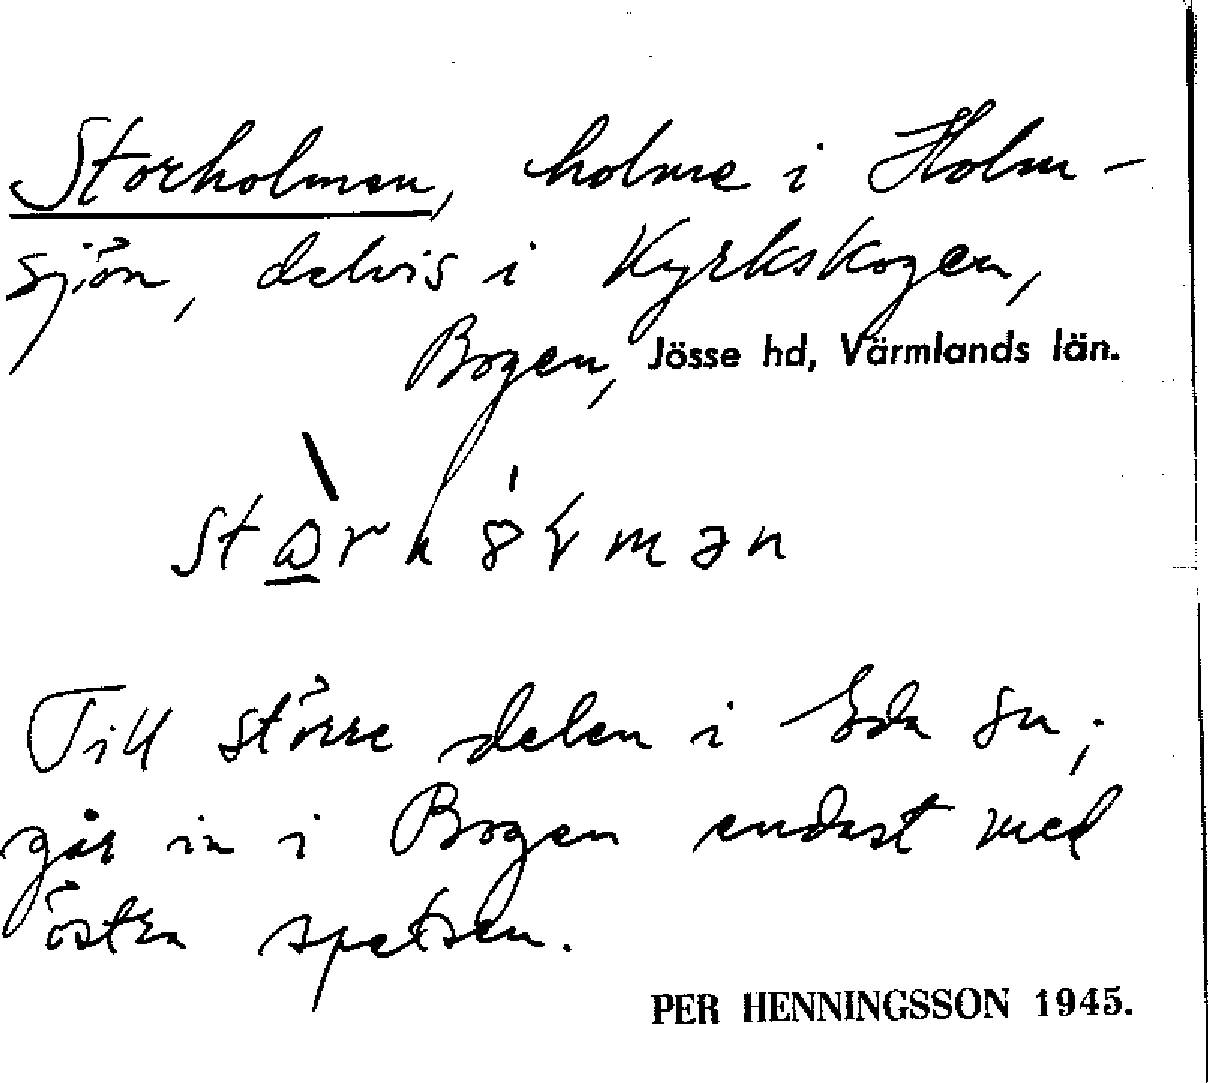 Storholmen, holme i Holm-
sjön, delvis i Kyrkskogen,
Bogen, Jösse hd, Värmlands län.
Till större delen i Eda sn;
går in i Bogen endast med
östra spetsen.
PER HENNINGSSON 1945.